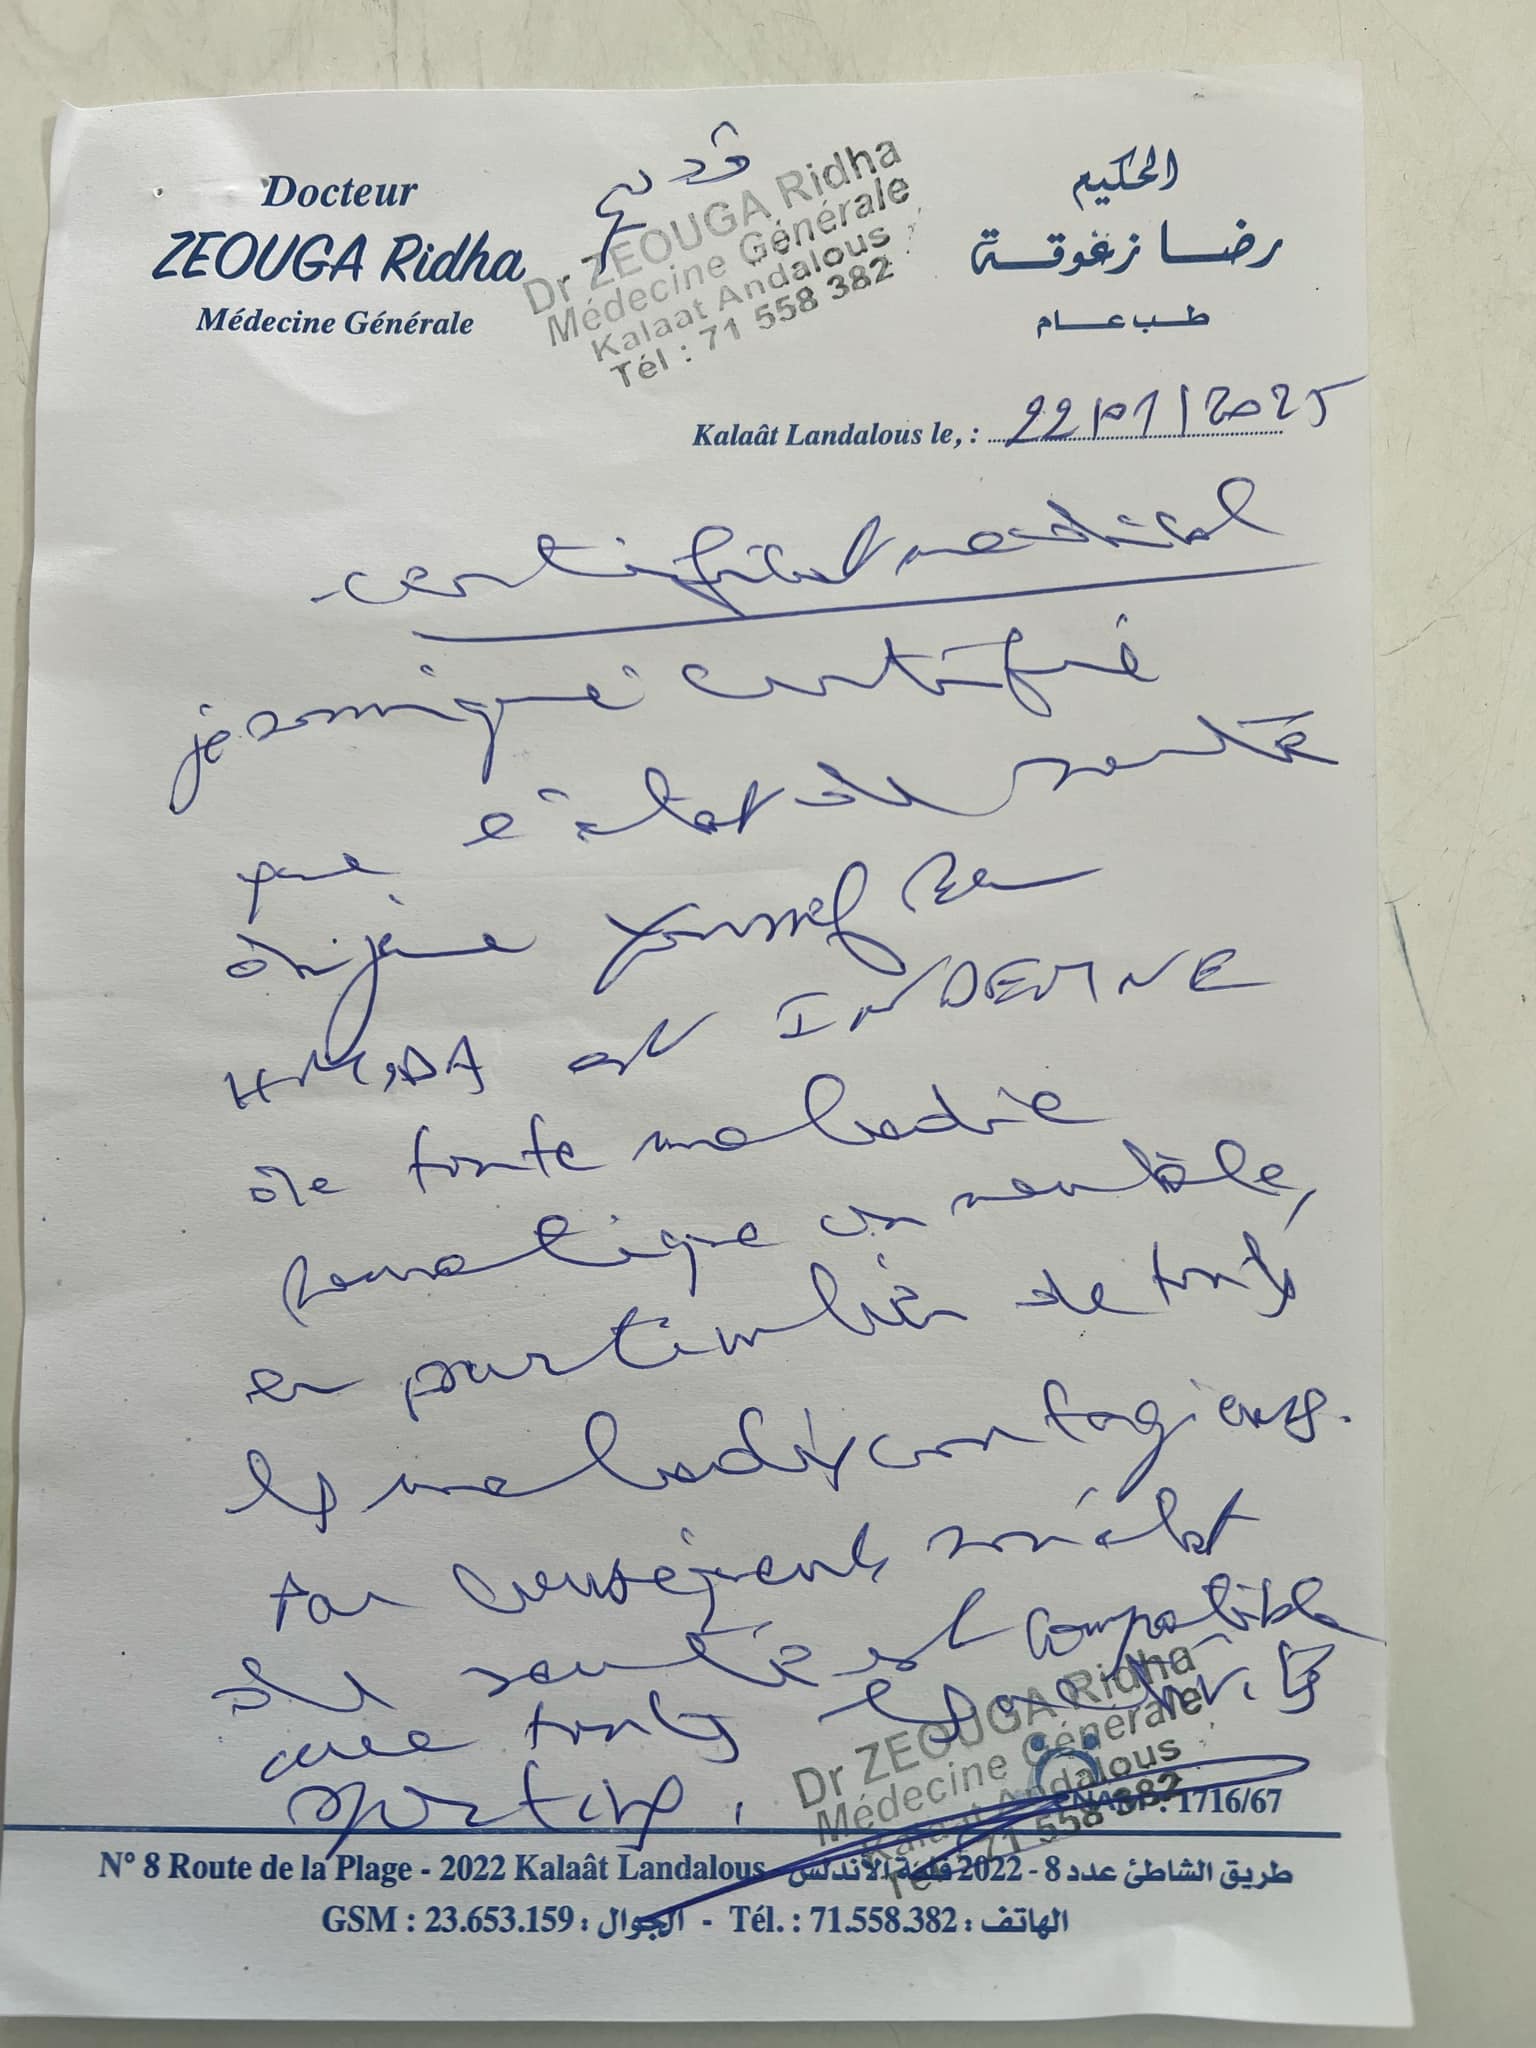 Docteur
ZEOUGA Ridha
Médecine Générale
الحكيم
رضا زغوقة
طب عام
Dr ZEOUGA Ridha
Médecine Générale
Kalaat Andalous
Tél : 71 558 382
Kalaât Landalous le, : 22/01/2025
certificat médical
je soussigné certifie
que l'état de santé
du jeune Youssef Ben
HMIDA est INDEMNE
de toute maladie
somatique ou mentale,
en particulier de toutes
les maladies contagieuses.
Par conséquent son état
de santé est compatible
avec toutes les activités
sportives.
Dr ZEOUGA Ridha
Médecine Générale
Kalaat Andalous
Tél : 71 558 382
CNAM : 1716/67
N° 8 Route de la Plage - 2022 Kalaât Landalous - طريق الشاطئ عدد 8 - 2022 قلعة الأندلس
GSM : 23.653.159 : الجوال - Tél. : 71.558.382 : الهاتف